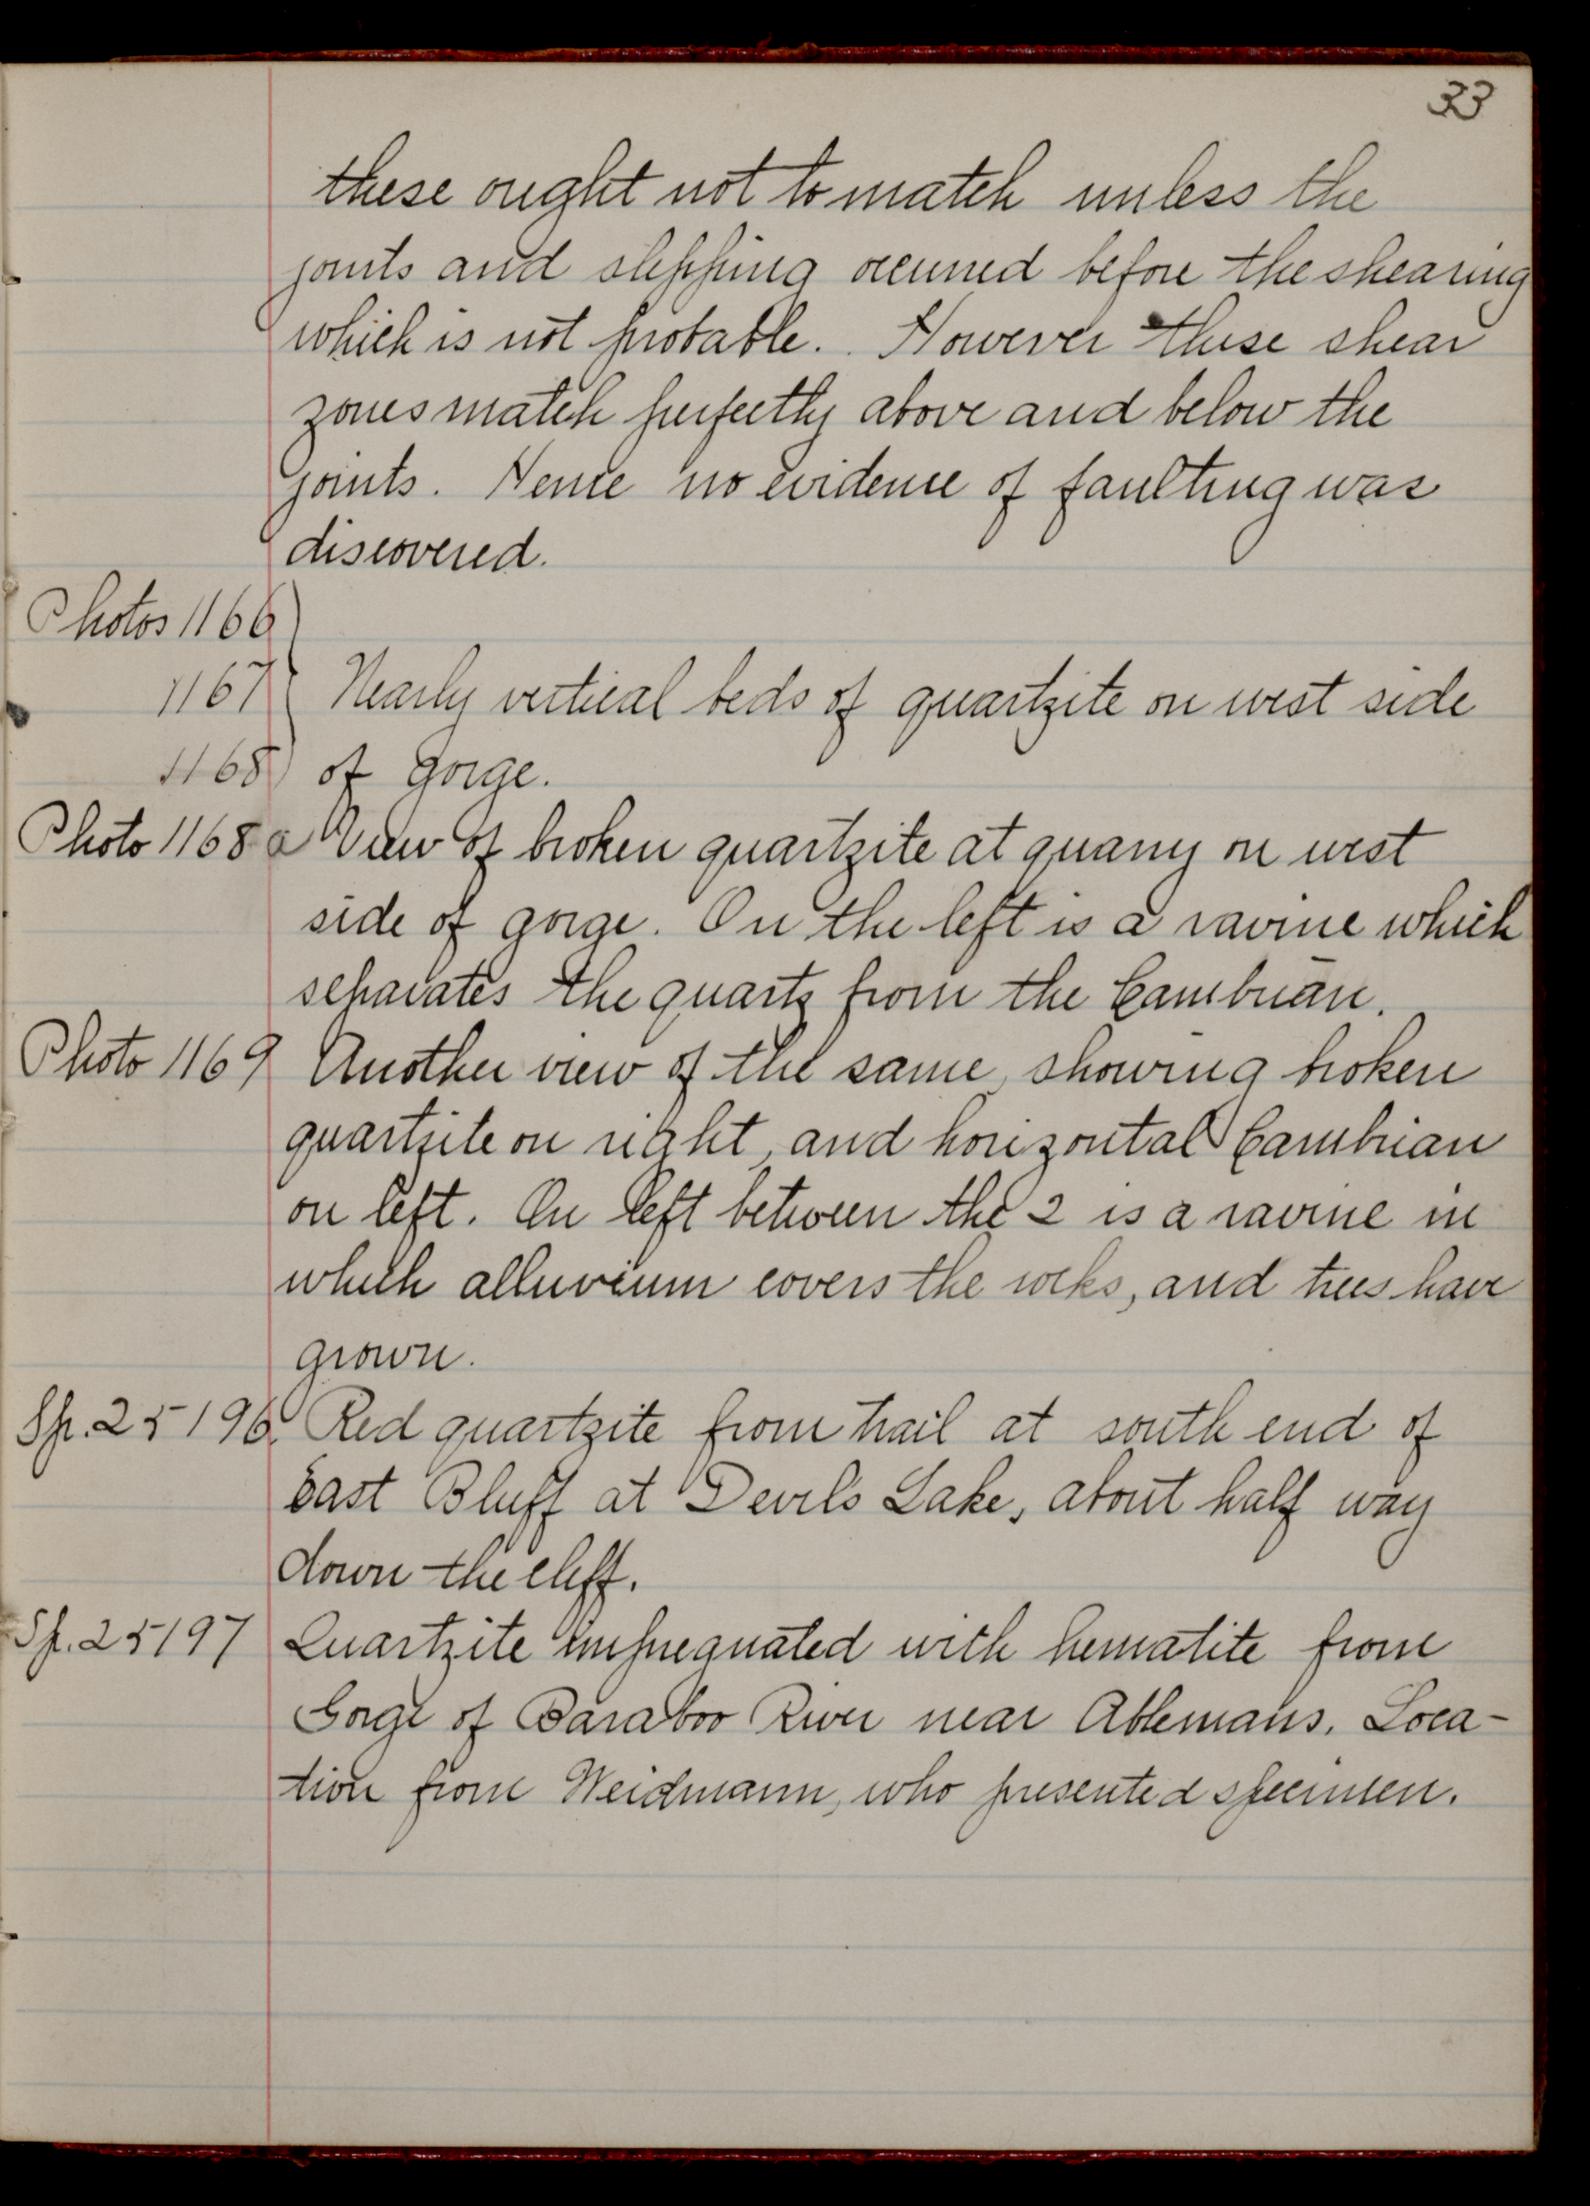 33
these ought not to match unless the
joints and slipping occurred before the shearing
which is not probable. However these shear
zones match perfectly above and below the
joints. Hence no evidence of faulting was
discovered.
Photos 1166
1167 Nearly vertical beds of quartzite on west side
1168 of gorge.
Photo 1168a View of broken quartzite at quarry on west
side of gorge. On the left is a ravine which
separates the quartz from the Cambrian.
Photo 1169 Another view of the same, showing broken
quartzite on right, and horizontal Cambrian
on left. On left between the 2 is a ravine in
which alluvium covers the rocks, and trees have
grown.
Sp. 25196. Red quartzite from trail at south end of
East Bluff at Devil's Lake, about half way
down the cliff.
Sp. 25197 Quartzite impregnated with hematite from
Gorge of Baraboo River near Ablemans. Loca-
tion from Weidmann, who presented specimen.